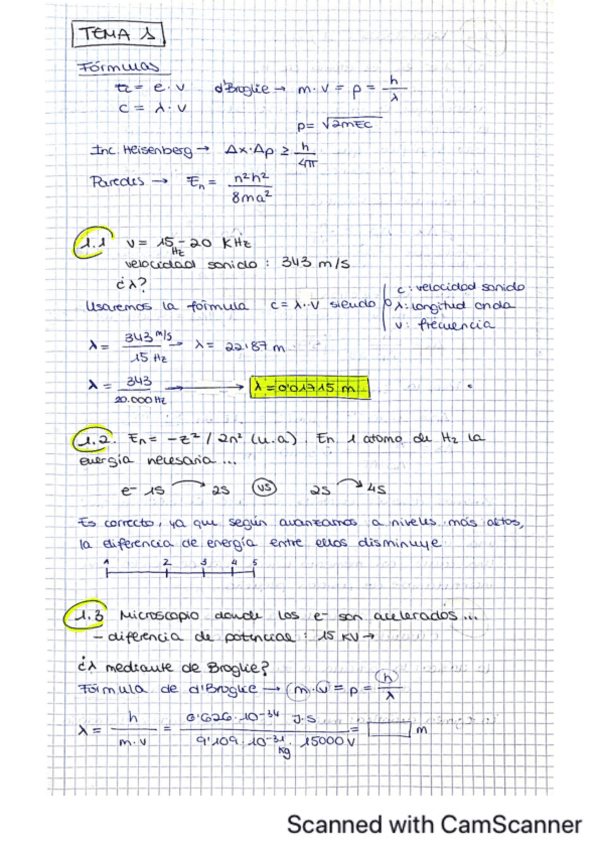 TEMA 1
Fórmulas
Ec = e · V    d'Broglie → m · v = p = h / λ
c = λ · ν
p = √2mEc
Inc. Heisenberg → Δx · Δp ≥ h / 4π
Paredes → En = n²h² / 8ma²
1.1 ν = 15 Hz - 20 KHz
velocidad sonido : 343 m/s
¿λ?
Usaremos la fórmula c = λ · ν siendo
c : velocidad sonido
λ : longitud onda
ν : frecuencia
λ = 343 m/s / 15 Hz → λ = 22'87 m
λ = 343 / 20.000 Hz → λ = 0'01715 m
1.2. En = -z² / 2n² (u.a). En 1 átomo de H2 la
energía necesaria ...
e- 1S → 2S vs 2S → 4S
Es correcto, ya que según avanzamos a niveles más altos,
la diferencia de energía entre ellos disminuye
1 2 3 4 5
1.3 Microscopio donde los e- son acelerados ...
- diferencia de potencial : 15 KV →
¿λ mediante de Broglie?
Fórmula de d'Broglie → m · v = p = h / λ
λ = h / m · v = 6'626 · 10-34 J · S / 9'109 · 10-31 Kg · 15000 V = m
Scanned with CamScanner